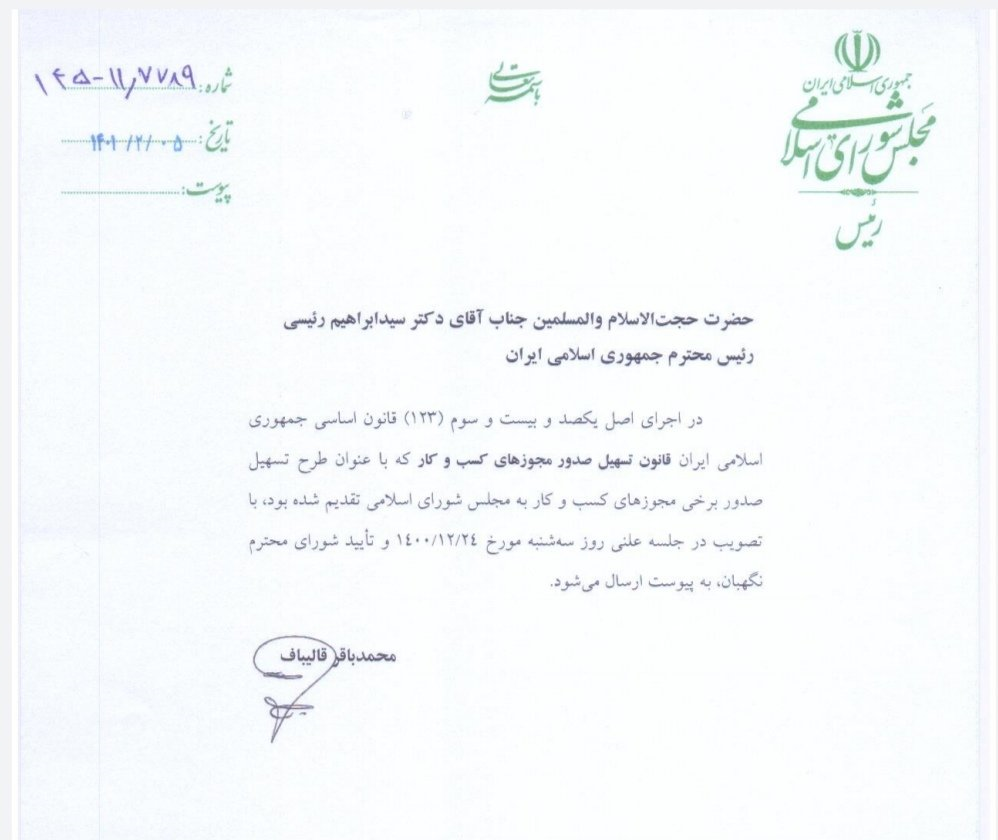 جمهوری اسلامی ایران
مجلس شورای اسلامی
رئیس
باسمه تعالی
شماره: ۱۴۵-۱۱/۷۷۸۹
تاریخ: ۱۴۰۱/۲/۰۵
پیوست:
حضرت حجت‌الاسلام والمسلمین جناب آقای دکتر سیدابراهیم رئیسی
رئیس محترم جمهوری اسلامی ایران
در اجرای اصل یکصد و بیست و سوم (۱۲۳) قانون اساسی جمهوری
اسلامی ایران قانون تسهیل صدور مجوزهای کسب و کار که با عنوان طرح تسهیل
صدور برخی مجوزهای کسب و کار به مجلس شورای اسلامی تقدیم شده بود، با
تصویب در جلسه علنی روز سه‌شنبه مورخ ۱٤۰۰/۱۲/۲٤ و تأیید شورای محترم
نگهبان، به پیوست ارسال می‌شود.
محمدباقر قالیباف